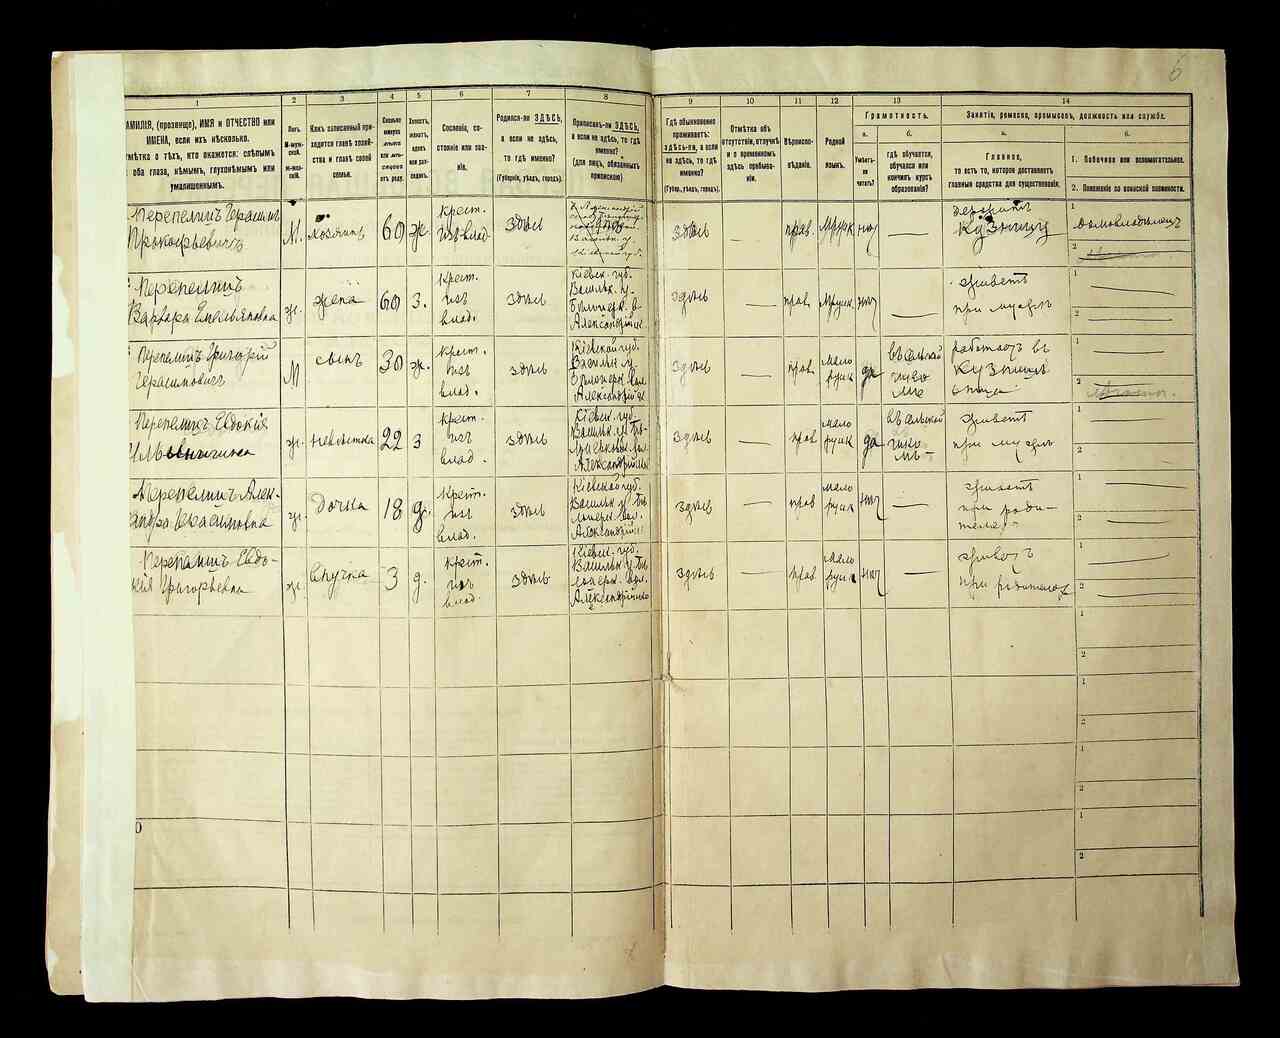 6
1
2
3
4
5
6
7
8
9
10
11
12
13
14
АМИЛІЯ, (прозвище), ИМЯ и ОТЧЕСТВО или
ИМЕНА, если ихъ нѣсколько.
мѣтка о тѣхъ, кто окажется: слѣпымъ
оба глаза, нѣмымъ, глухонѣмымъ или
умалишеннымъ.
Полъ.
М-муж-
ской.
Ж-жен-
скій.
Какъ записанный при-
ходится главѣ хозяй-
ства и главѣ своей
семьи.
Сколько
минуло
лѣтъ
или мѣ-
сяцевъ
отъ роду.
Холостъ,
женатъ,
вдовъ
или раз-
веденъ.
Сословіе, со-
стояніе или зва-
ніе.
Родился-ли ЗДѢСЬ,
а если не здѣсь,
то гдѣ именно?
(Губернія, уѣздъ, городъ).
Приписанъ-ли ЗДѢСЬ,
а если не здѣсь, то гдѣ
именно?
(для лицъ, обязанныхъ
припиской)
Гдѣ обыкновенно
проживаетъ:
здѣсь-ли, а если
не здѣсь, то гдѣ
именно?
(Губ., уѣздъ, городъ).
Отмѣтка объ
отсутствіи, отлучкѣ
и о временномъ
здѣсь пребыва-
ніи.
Вѣроиспо-
вѣданіе.
Родной
языкъ.
Грамотность.
а.
б.
Умѣетъ-
ли
читать?
гдѣ обучается,
обучался или
кончилъ курсъ
образованія?
Занятіе, ремесло, промыселъ, должность или служба.
а.
б.
Главное,
то есть то, которое доставляетъ
главныя средства для существованія.
1. Побочное или вспомогательное.
2. Положеніе по воинской повинности.
Перепелицъ Герасимъ
Прокофьевичъ
М.
хозяинъ
60
ж.
Крест.
изъ влад.
здѣсь
здѣсь
—
прав.
нѣт
—
держитъ
Кузницу
1
домовладѣлецъ
2
Перепелицъ
Варвара Емельяновна
ж.
жена
60
З.
Крест.
изъ
влад.
здѣсь
Кіевск. губ.
Васильк. у.
Александрійск.
здѣсь
—
прав.
нѣт
—
живетъ
при мужѣ
1
2
Перепелицъ Григорій
Герасимовичъ
М
сынъ
30
ж.
Крест.
изъ
влад.
здѣсь
Кіевской губ.
Васильк. у.
Александрійск
здѣсь
—
прав.
мало
русск
да
въ сельской
работаетъ въ
Кузницѣ
отца
1
2
Перепелицъ Евдокія
ж.
невѣстка
22
З
Крест.
изъ
влад.
здѣсь
Кіевск. губ.
Васильк. у.
здѣсь
—
прав
мало
русск
да
въ сельской
живетъ
при мужѣ
1
2
Перепелицъ Алек-
сандра Герасимовна
ж.
дочка
18
д.
Крест.
изъ
влад.
здѣсь
Кіевской губ.
Васильк. у.
здѣсь
—
прав
мало
русск
нѣт
—
живетъ
при роди-
теляхъ
1
2
Перепелицъ Евдо-
кія Григорьевна
ж.
внучка
3
д.
Крест.
изъ
влад.
здѣсь
Кіевск. губ.
Васильк. у.
здѣсь
—
прав
мало
русск
нѣт
—
живетъ
при родителяхъ
1
2
1
2
1
2
1
2
0
1
2